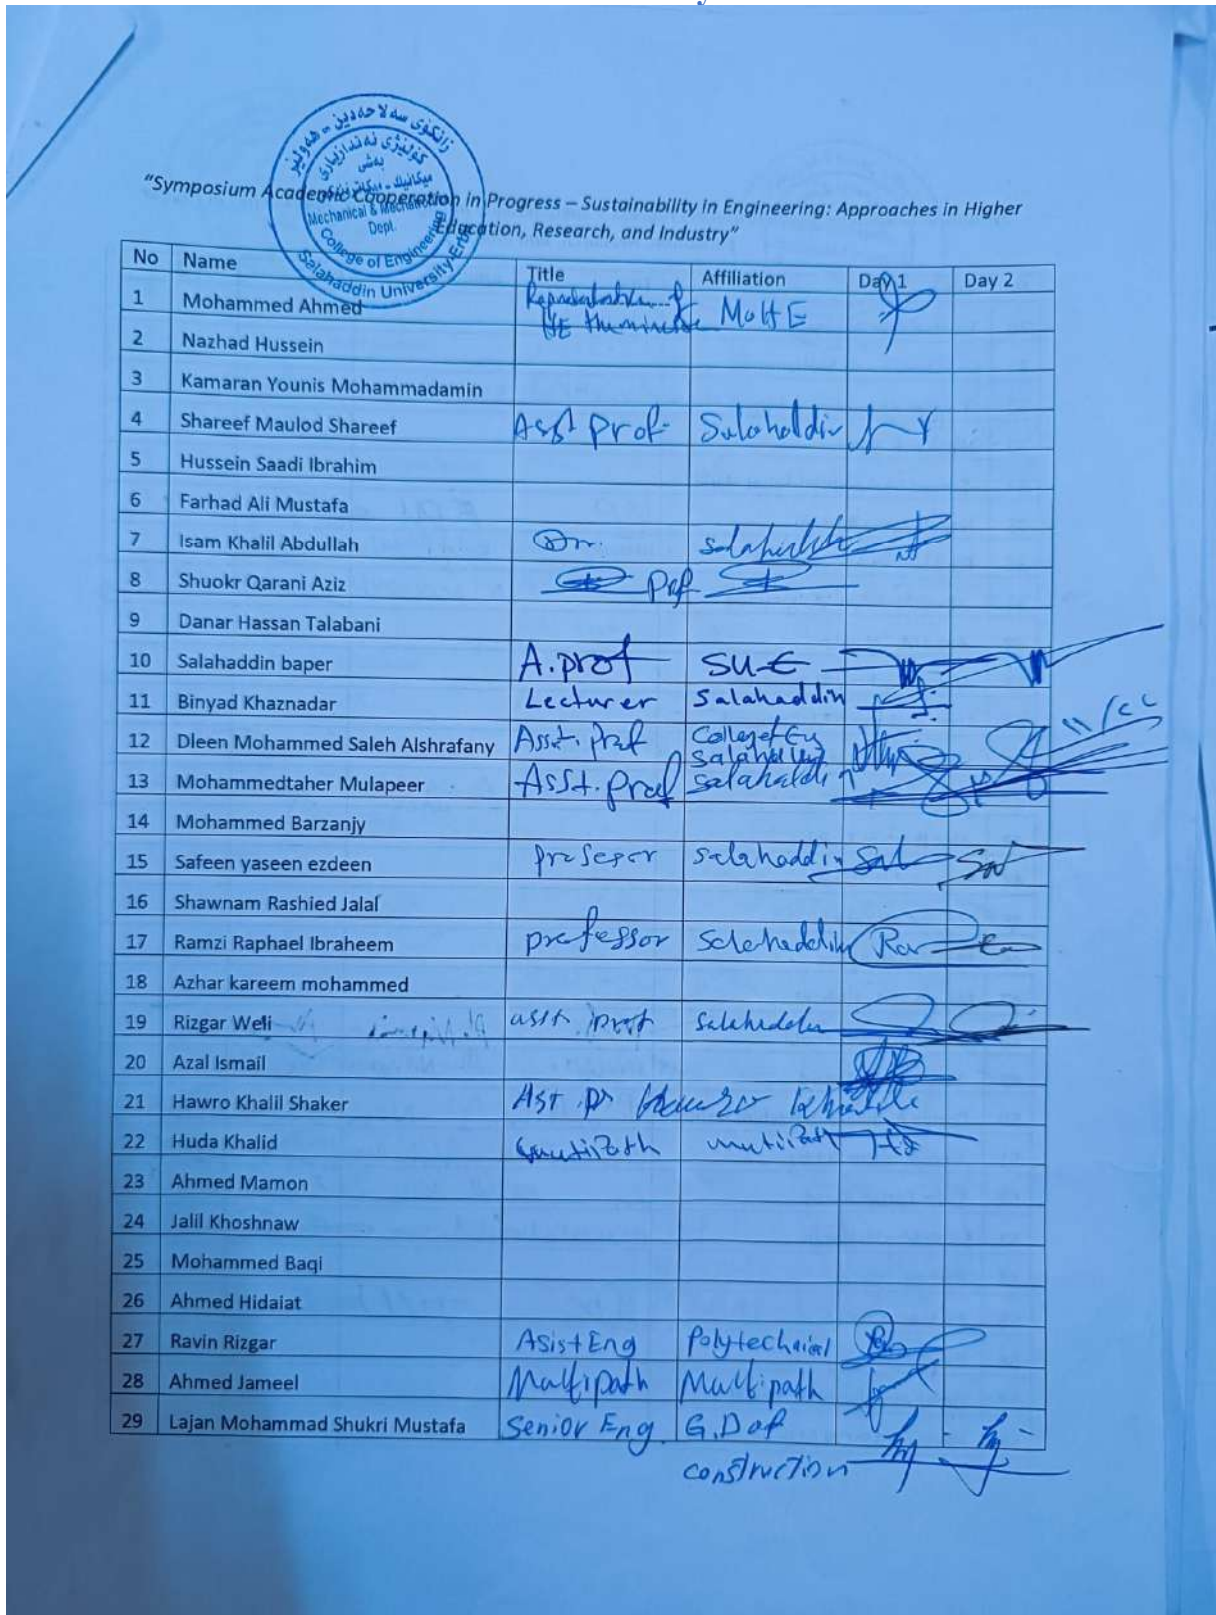 زانكۆی سەلاحەدین - هەولێر
كۆلێژی ئەندازیاری
بەشی
Mechanical &
Dept.
College of Engineering
Salahaddin University-Erbil
"Symposium Academic Cooperation in Progress – Sustainability in Engineering: Approaches in Higher
Education, Research, and Industry"
No Name Title Affiliation Day 1 Day 2
1 Mohammed Ahmed HE MoHE
2 Nazhad Hussein
3 Kamaran Younis Mohammadamin
4 Shareef Maulod Shareef Asst prof. Salahaddin
5 Hussein Saadi Ibrahim
6 Farhad Ali Mustafa
7 Isam Khalil Abdullah Dr.
8 Shuokr Qarani Aziz
9 Danar Hassan Talabani
10 Salahaddin baper A.prof SUE
11 Binyad Khaznadar Lecturer Salahaddin
12 Dleen Mohammed Saleh Alshrafany Asst. Prof
13 Mohammedtaher Mulapeer Asst. prof
14 Mohammed Barzanjy
15 Safeen yaseen ezdeen salahaddin
16 Shawnam Rashied Jalal
17 Ramzi Raphael Ibraheem professor
18 Azhar kareem mohammed
19 Rizgar Weli asst. prof
20 Azal Ismail
21 Hawro Khalil Shaker
22 Huda Khalid
23 Ahmed Mamon
24 Jalil Khoshnaw
25 Mohammed Baqi
26 Ahmed Hidaiat
27 Ravin Rizgar Asist Eng
28 Ahmed Jameel Multipath Multipath
29 Lajan Mohammad Shukri Mustafa Senior Eng. G.D of
construction